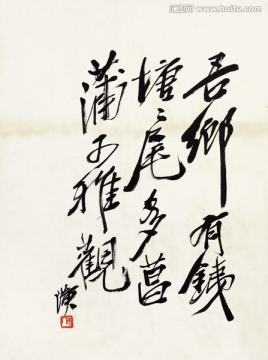 汇图网 www.huitu.com
吾鄉有銕
塘〻尾多菖
蒲可雅觀
璜